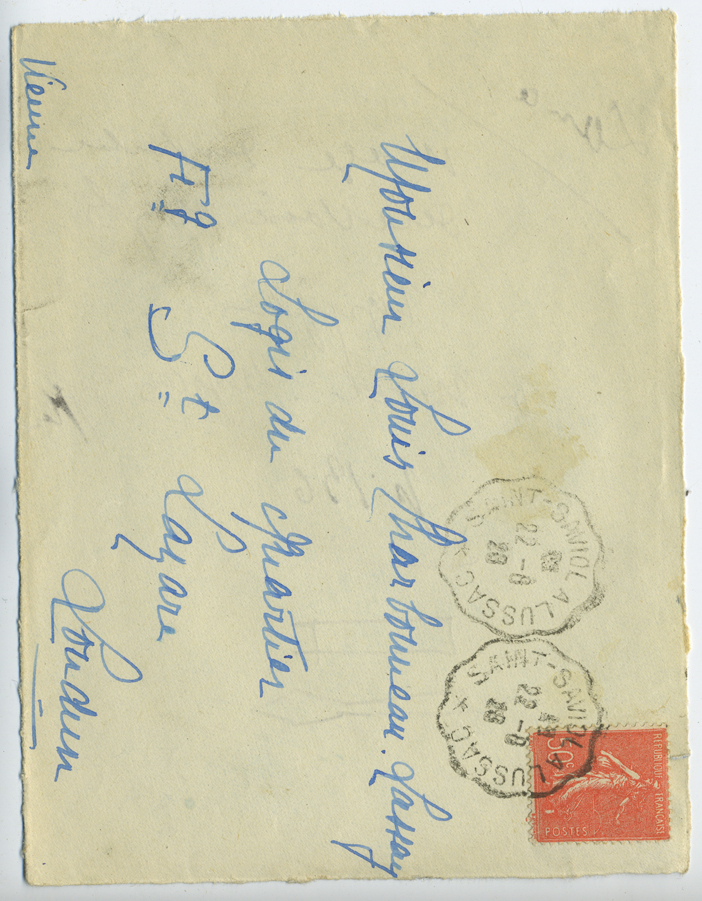 Monsieur Louis Charbonneau-Lassay
Logis du Chartier
Fg St Lazare
Loudun
Vienne
SAINT-SAVIOL A LUSSAC *
22 - 8
28
SAINT-SAVIOL A LUSSAC *
22 - 8
28
REPUBLIQUE FRANÇAISE
50c
POSTES